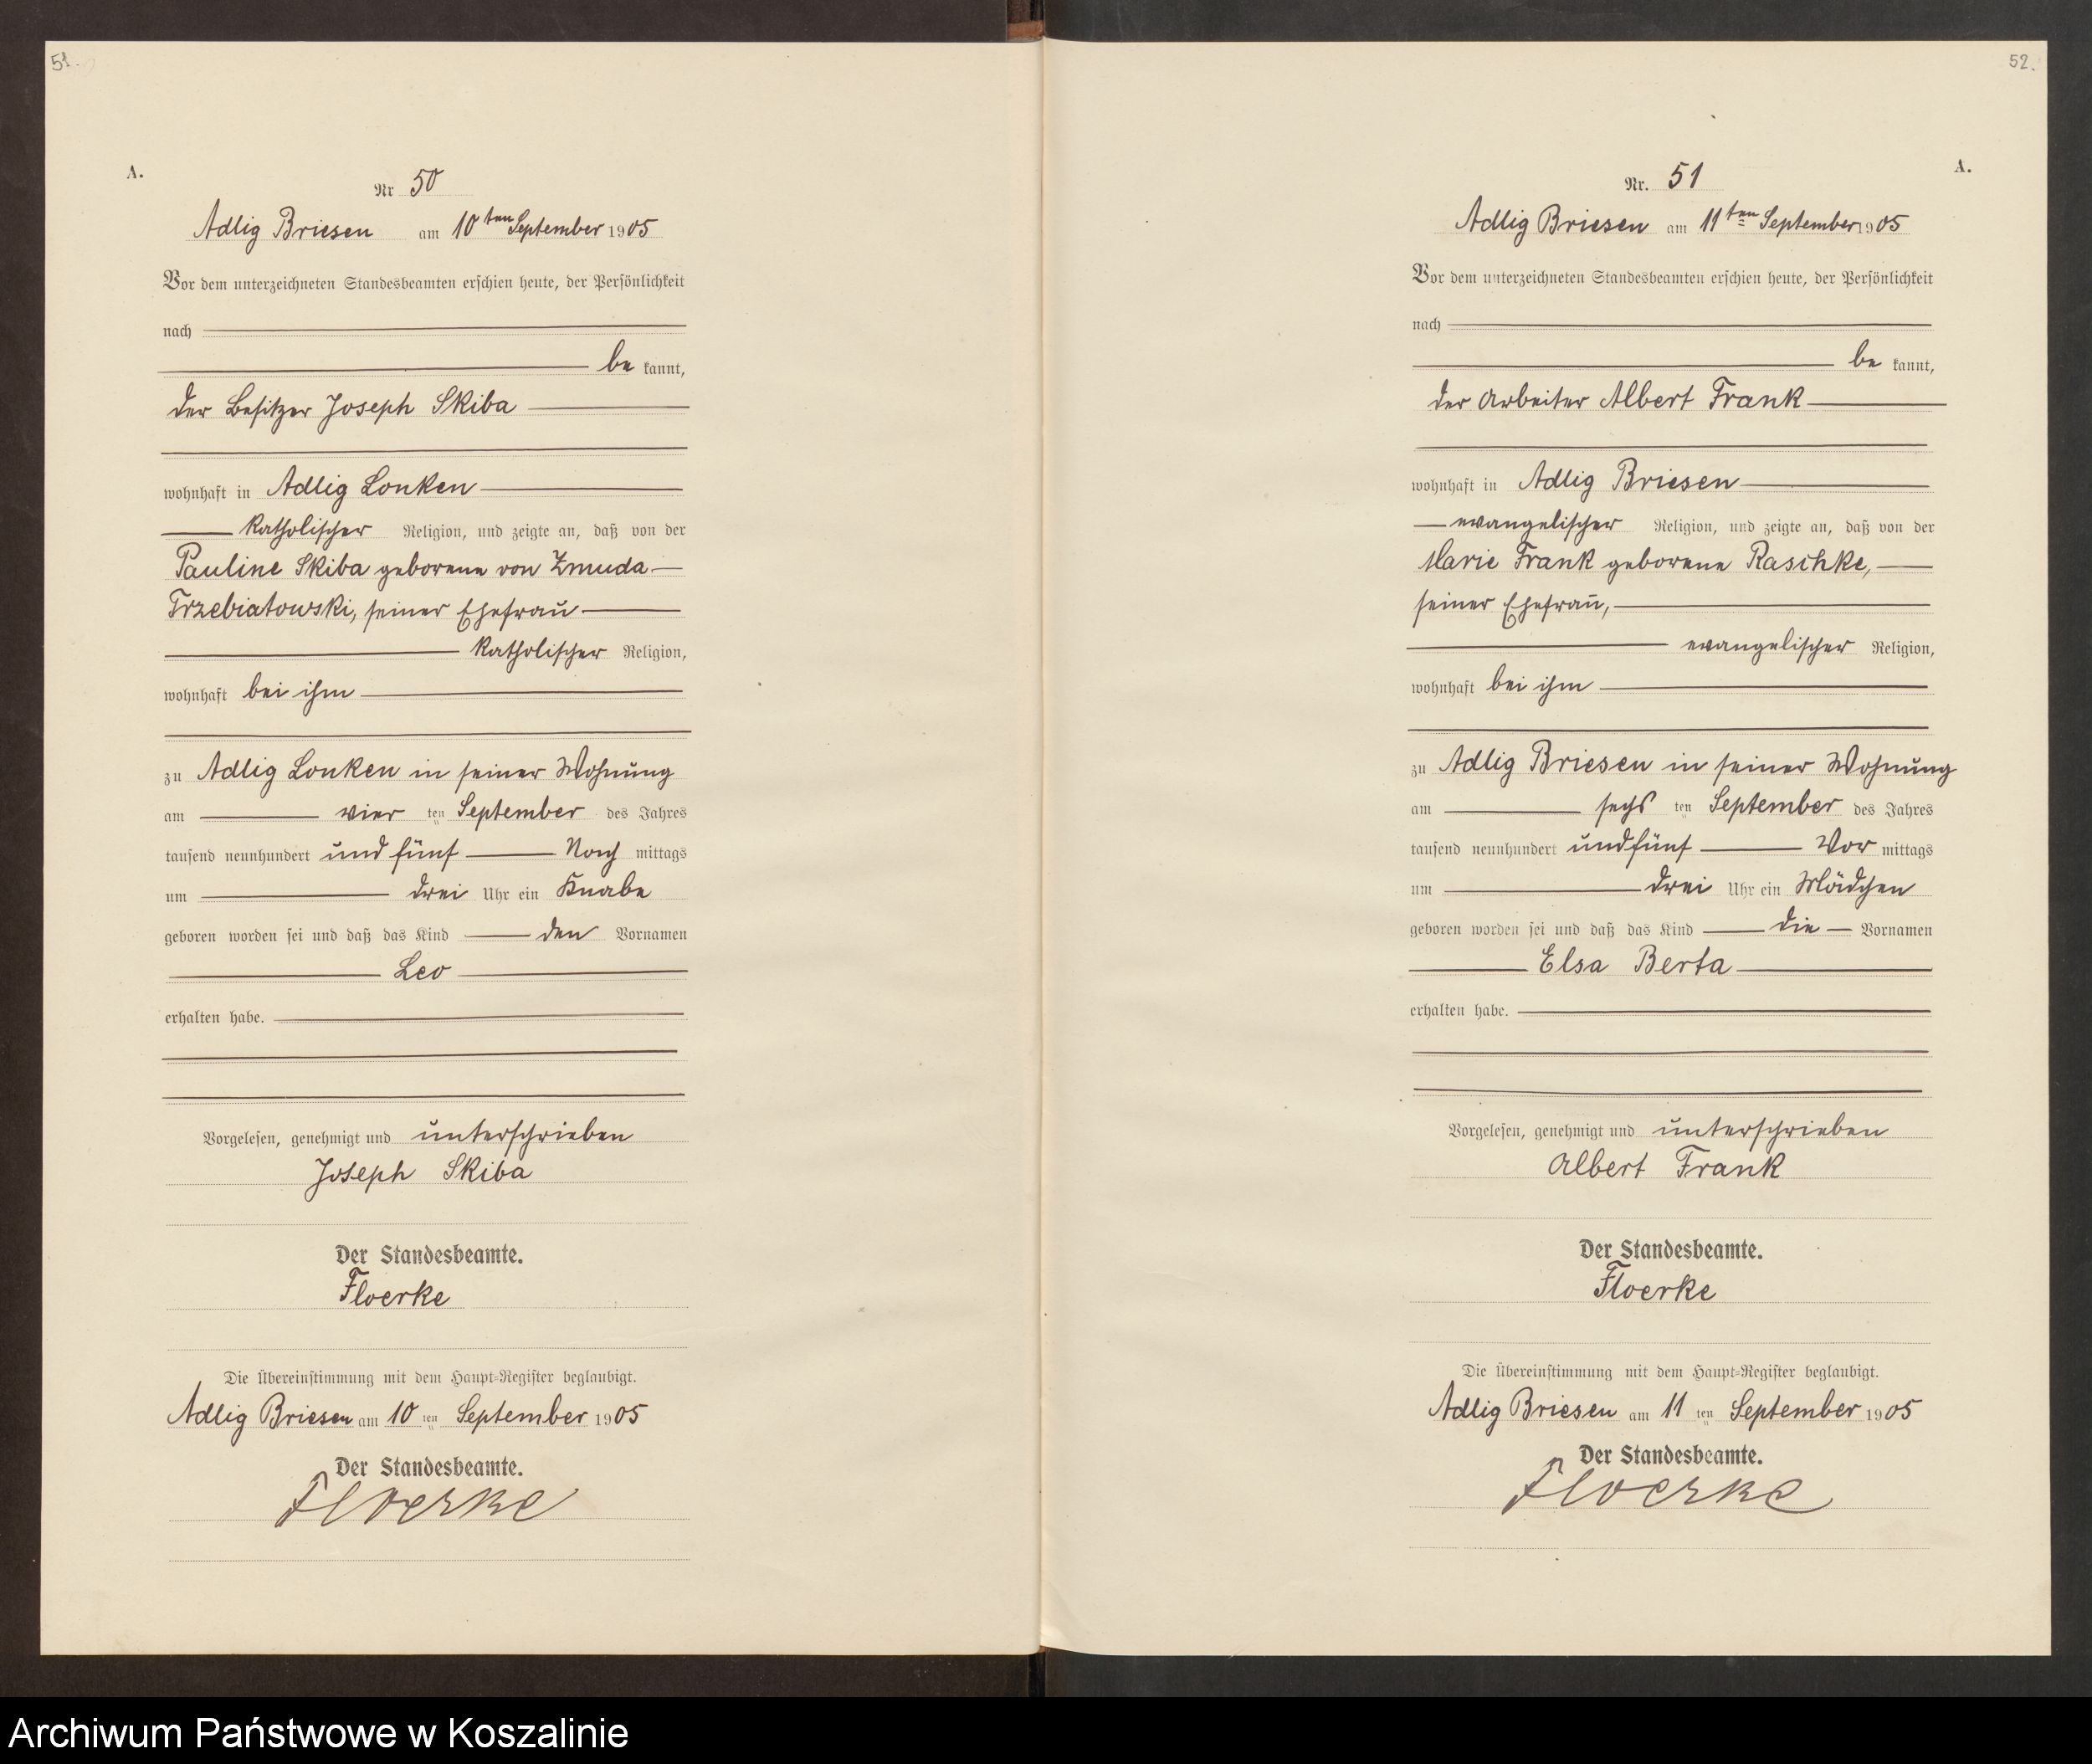 51.
A.
Nr 50
Adlig Briesen am 10ten September 1905
Vor dem unterzeichneten Standesbeamten erschien heute, der Persönlichkeit
nach
be kannt,
der Besitzer Joseph Skiba
wohnhaft in Adlig Lonken
katholischer Religion, und zeigte an, daß von der
Pauline Skiba geborene von Zmuda
Trzebiatowski, seiner Ehefrau
katholischer Religion,
wohnhaft bei ihm
zu Adlig Lonken in seiner Wohnung
am vier ten September des Jahres
tausend neunhundert und fünf Nach mittags
um drei Uhr ein Knabe
geboren worden sei und daß das Kind den Vornamen
Leo
erhalten habe.
Vorgelesen, genehmigt und unterschrieben
Joseph Skiba
Der Standesbeamte.
Floerke
Die Übereinstimmung mit dem Haupt-Register beglaubigt.
Adlig Briesen am 10 ten September 1905
Der Standesbeamte.
Floerke
52.
A.
Nr. 51
Adlig Briesen am 11ten September 1905
Vor dem unterzeichneten Standesbeamten erschien heute, der Persönlichkeit
nach
be kannt,
der Arbeiter Albert Frank
wohnhaft in Adlig Briesen
evangelischer Religion, und zeigte an, daß von der
Marie Frank geborene Raschke,
seiner Ehefrau,
evangelischer Religion,
wohnhaft bei ihm
zu Adlig Briesen in seiner Wohnung
am sechs ten September des Jahres
tausend neunhundert und fünf Vor mittags
um drei Uhr ein Mädchen
geboren worden sei und daß das Kind die Vornamen
Elsa Berta
erhalten habe.
Vorgelesen, genehmigt und unterschrieben
Albert Frank
Der Standesbeamte.
Floerke
Die Übereinstimmung mit dem Haupt-Register beglaubigt.
Adlig Briesen am 11 ten September 1905
Der Standesbeamte.
Floerke
Archiwum Państwowe w Koszalinie